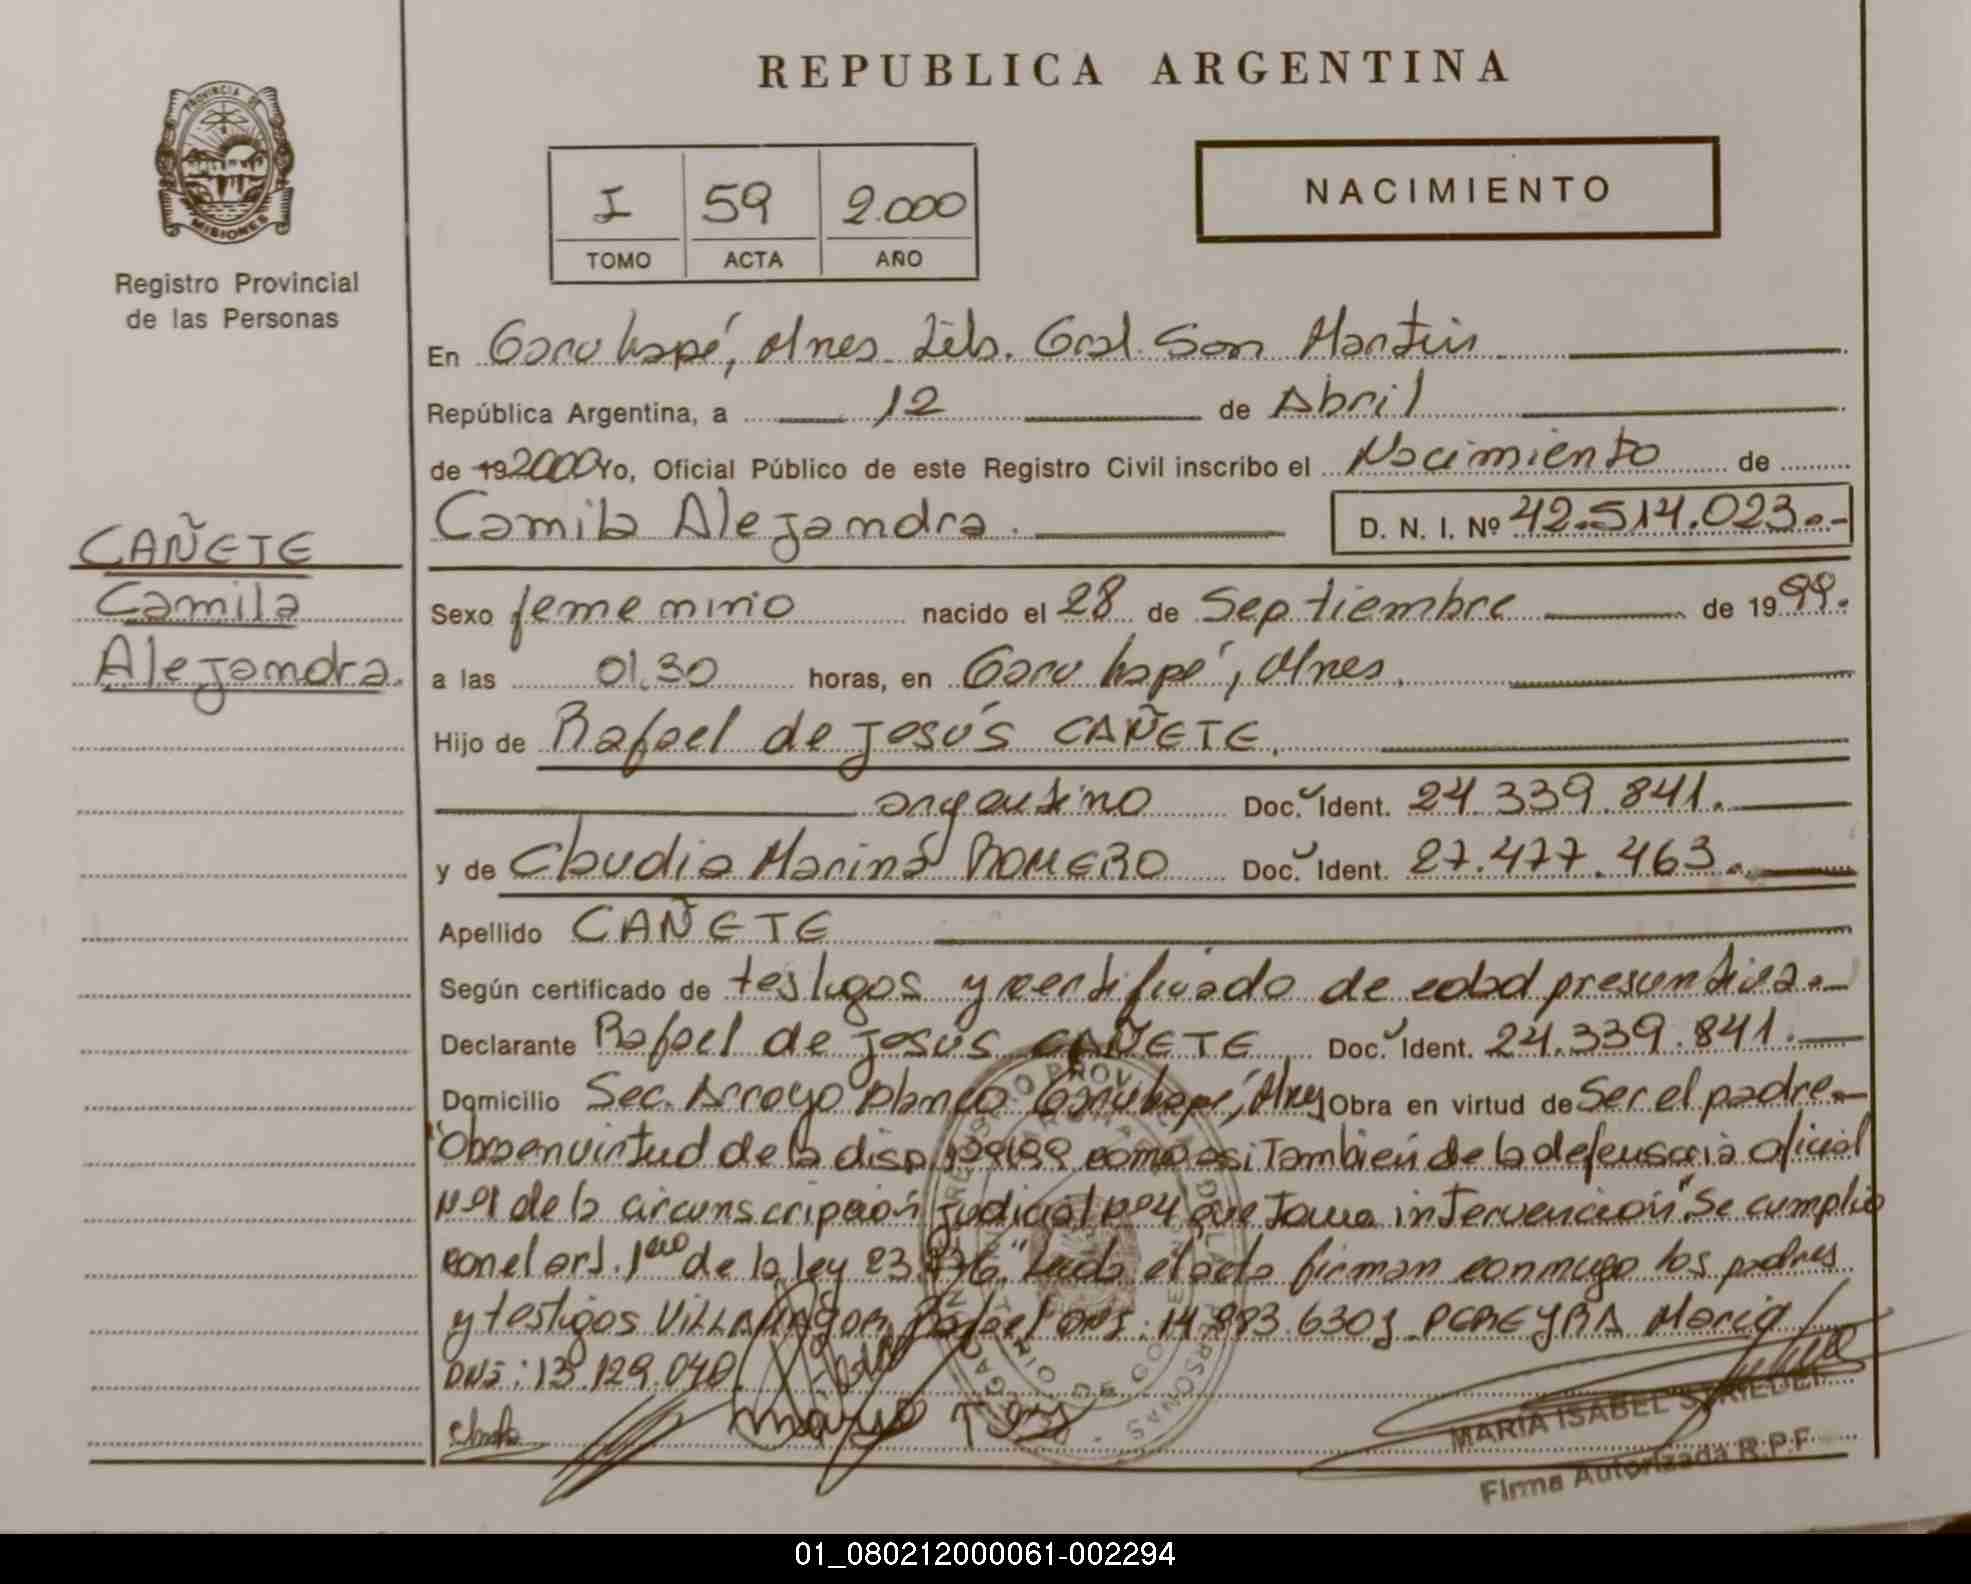 REPUBLICA ARGENTINA
PROVINCIA DE
MISIONES
Registro Provincial
de las Personas
I 59 2.000
TOMO ACTA AÑO
NACIMIENTO
En Garuhapé, Mnes. Lib. Gral. San Martín
República Argentina, a 12 de Abril
de 192000 Yo, Oficial Público de este Registro Civil inscribo el Nacimiento de
Camila Alejandra. D. N. I. Nº 42.514.023.-
CAÑETE
Camila
Alejandra.
Sexo femenino nacido el 28 de Septiembre de 1999.
a las 01.30 horas, en Garuhapé, Mnes.
Hijo de Rafael de Jesús CAÑETE.
argentino Doc. Ident. 24.339.841.
y de Claudia Marina ROMERO Doc. Ident. 27.477.463.
Apellido CAÑETE
Según certificado de testigos y certificado de edad presuntiva.-
Declarante Rafael de Jesús CAÑETE Doc. Ident. 24.339.841.
Domicilio Sec. Arroyo Blanco Garuhapé, Mnes Obra en virtud de Ser el padre.-
"Obra en virtud de la disp. como asi También de la defensoria oficial
Nº1 de la circunscripción judicial Nº4 que Toma intervención". Se cumplio
con el art. 1ero de la ley "Leida el acta firman conmigo los padres
y testigos Rafael DNI: PEREYRA Maria
DNI: 13.129.040
MARIA ISABEL STRIEDER
Firma Autorizada R.P.F.
01_080212000061-002294